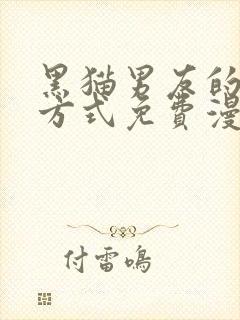 黑猫男友的
方式免費漫
付雷鳴